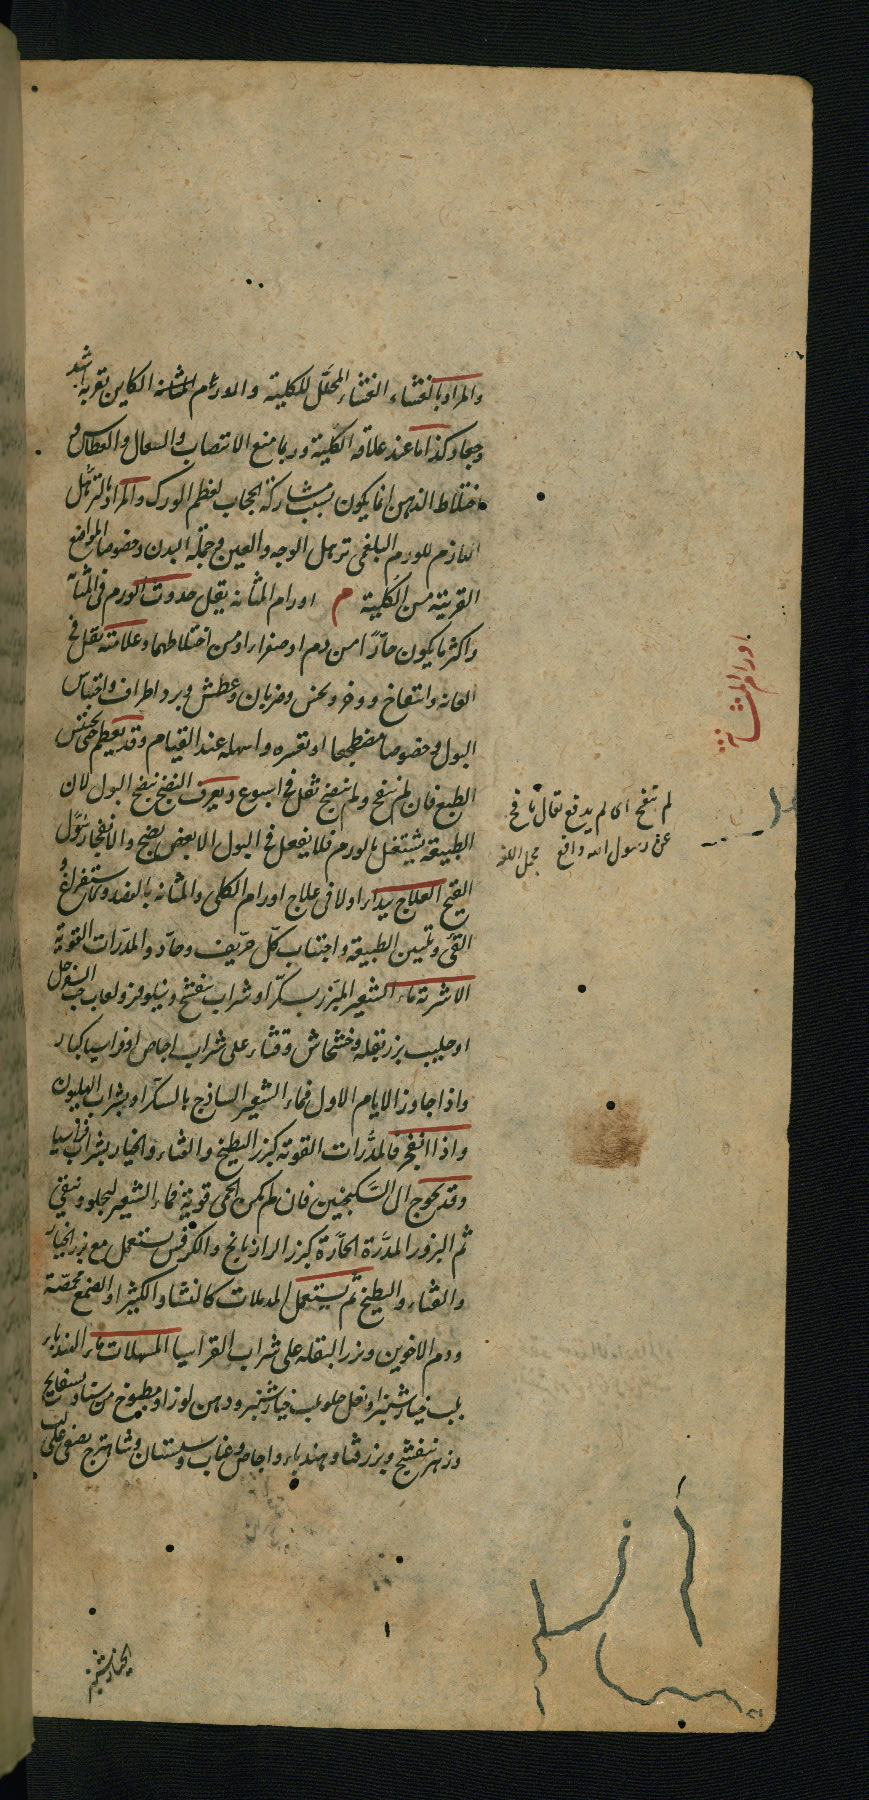 والمراد بالغشاء الغشاء المجلل للكلية والورم الكاين بقربه اشد
وجعا وكذا ما عند علاقة الكلية وربما منع الانتصاب والسعال والعطاس و
اختلاط الذهن انما يكون بسبب مشاركة الحجاب لعظم الورك والمراد بالترهل
اللازم للورم البلغمى ترهل الوجه والعين وجملة البدن وخصوصا المواضع
القريبة من الكلية م اورام المثانه يقل حدوث الورم فى المثانة
واكثر ما يكون حارّا من دم او صفرا او من اختلاطهما وعلامته ثقل فى
العانه وانتفاخ ووخز ونخس وضربان وعطش وبرد اطراف واحتباس
البول وخصوصا مضطجعا او تعسره واسهله عند القيام وقد يعظم حتى يحتبس
الطبع فان لم تنفخ ولم ينضج ثقل فى اسبوع ويعرف النضج بنضج البول لان
الطبيعة يشتغل بالورم فلا يفعل فى البول الا بعض نضج والانفجار بتبول
القيح العلاج يبدأ اولا فى علاج اورام الكلى والمثانه بالفصد واستفراغ و
القئ وتليين الطبيعة واجتناب كلّ حرّيف وحادّ والمدرّات القوية
الاشربة ماء الشعير المبزر بسكّر او شراب بنفسج ونيلوفر ولعاب حب السفرجل
او حليب بزر بقلة وخشخاش وقثاء على شراب اجاص او قراسيا كبار
واذا جاوز الايام الاول فماء الشعير الساذج بالسكّر او بشراب الهليون
واذا انفجر فالمدرّات القويّة كبزر البطيخ والقثاء والخيار بشراب قراسيا
وقد يحوج الى السّكنجبين فان لم يكن الحمى قوية فماء الشعير ليجلو وينقي
ثم البزور المدرّة الحارّة كبزر الرازيانج والكرفس يستعمل مع بزر الخيار
والقثاء والبطيخ ثم يستعمل المدملات كالنشا والكثيرا والصمغ محمّصة
ودم الاخوين وبزر البقله على شراب القراسيا المسهلات ماء الهندباء
بلب خيارشنبر او نخل حلو بلب خيارشنبر ودهن لوز او مطبوخ من سنا وبسفايج
وزهر بنفسج وبزر قثا وهندباء واجاص وعناب وسپستان وشاهترج يصفى على لب
الخيار شنبر
اورام المثانة
لم تنفخ اى لم يدفع يقال نافح
عن رسول الله دافع مجمل اللغه